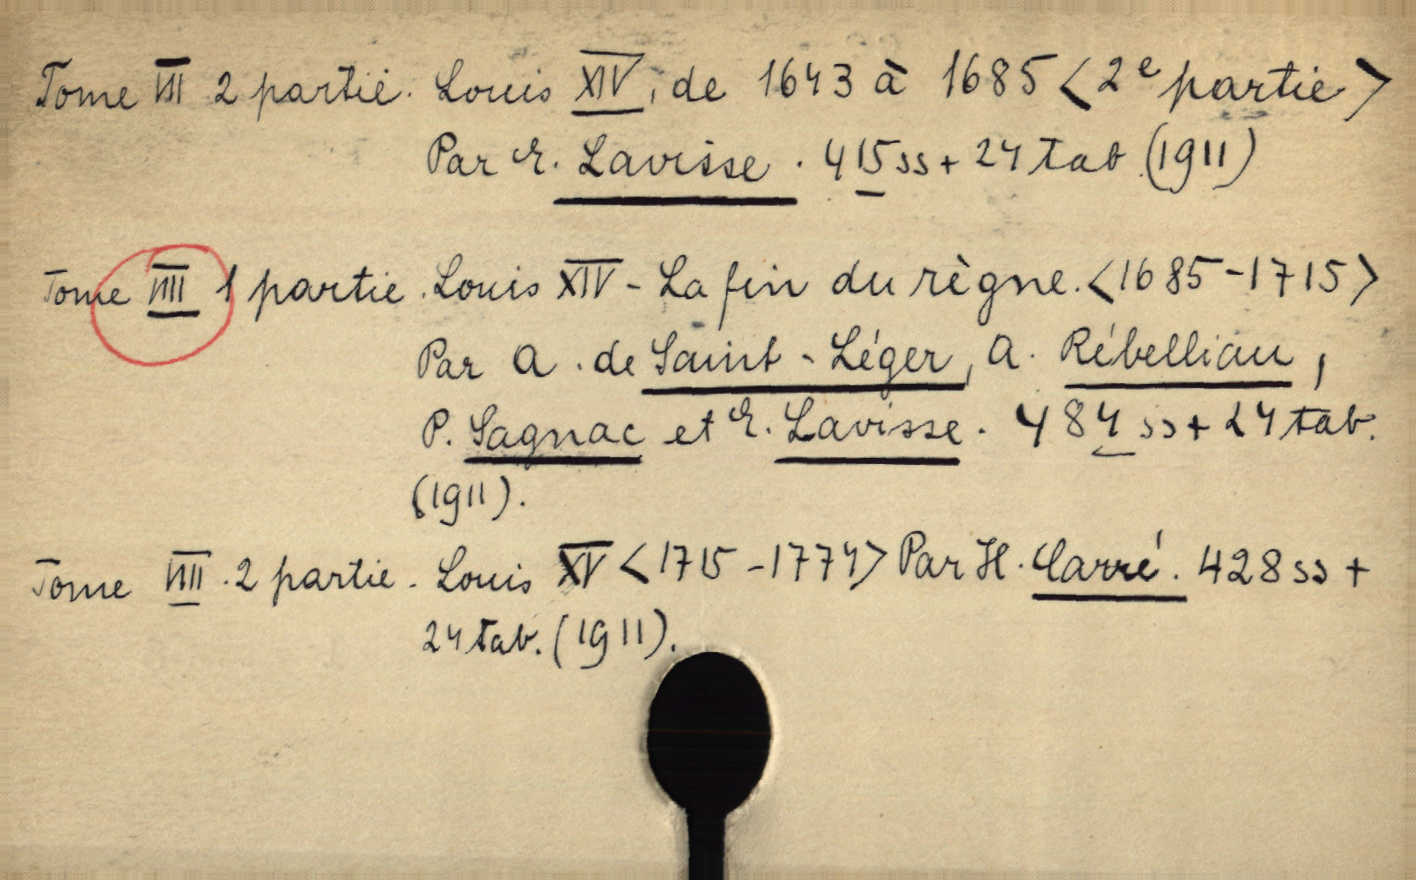 Tome VII 2 partie. Louis XIV, de 1643 à 1685 <2e partie>
Par E. Lavisse. 415 ss + 24 tab (1911)
Tome VIII 1 partie. Louis XIV - La fin du règne. <1685-1715>
Par A. de Saint-Léger, A. Rébelliau,
P. Sagnac et E. Lavisse. 484 ss + 24 tab.
(1911).
Tome VIII. 2 partie. Louis XV <1715-1774> Par H. Carré. 428 ss +
24 tab. (1911).